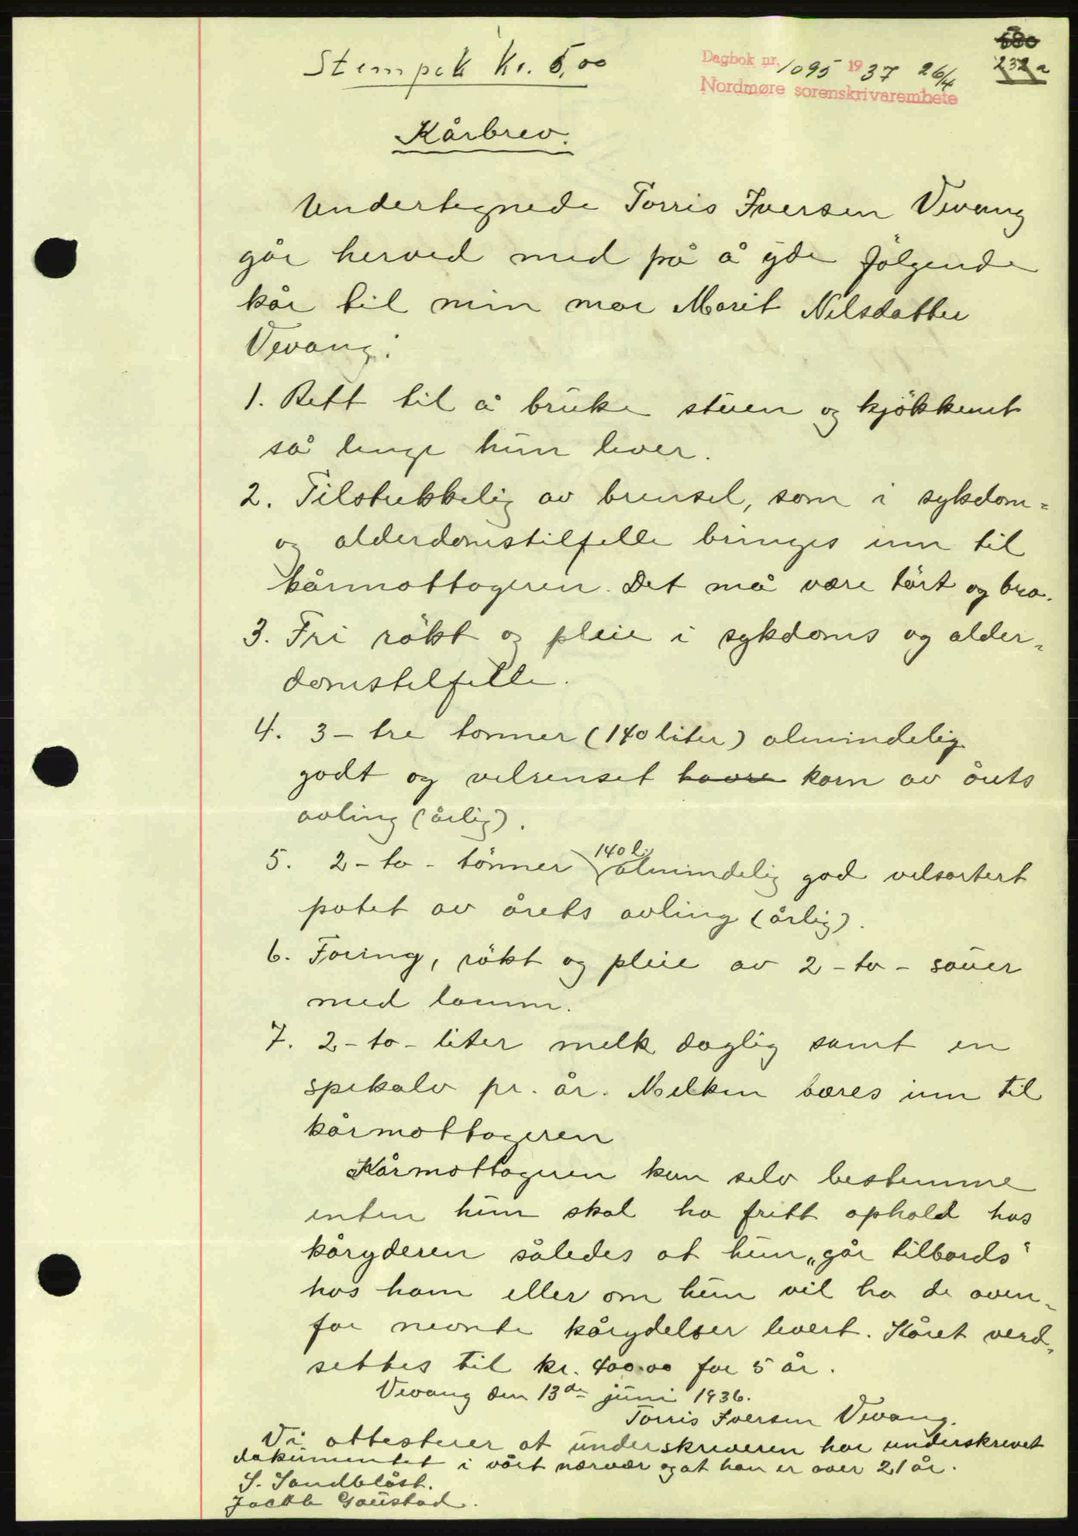 Stempek kr. 5,00
Dagbok nr. 1095 1937 26/4
Nordmøre sorenskrivarembete
580
232 a
Kårbrev.
Undertegnede Torris Iversen Vevang
går herved med på å yde følgende
kår til min mor Marit Nilsdatter
Vevang:
1. Rett til å bruke stuen og kjøkkent
så lenge hun lever.
2. Tilstrekkelig av brensel, som i sykdom=
og alderdomstilfelle bringes inn til
kårmottageren. Det må være tørt og bra.
3. Fri røkt og pleie i sykdoms og alder=
domstilfelle.
4. 3 – tre tonner (140 liter) almindelig
godt og velrenset havre korn av årets
avling (årlig).
5. 2 – to – tønner 140 l. almindelig god velsortert
potet av årets avling (årlig).
6. Foring, røkt og pleie av 2 – to – sauer
med lamm.
7. 2 – to – liter melk daglig samt en
spekalv pr. år. Melken bæres inn til
kårmottageren
Kårmottageren kan selv bestemme
enten hun skal ha fritt ophold hos
kåryderen således at hun „går tilbords"
hos ham eller om hun vil ha de oven=
for nevnte kårydelser levert. Kåret verd=
settes til kr. 400.00 for 5 år.
Vevang den 13de juni 1936.
Torris Iversen Vevang.
Vi attesterer at underskriveren har underskrevet
dokumentet i vårt nærvær og at han er over 21 år.
S. Sandblåst.
Jacob Gaustad.